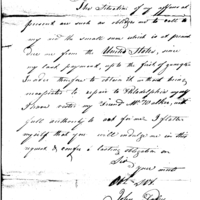 The Situation of my affairs at
present are such as obliges me to call to
my aid the small sum which is at present
due me from the United States, since
my last payment, up to the first of
I wish therefore to obtain it without being
necessitated to repair to Philadelphia
I have wrote my friend Mr. with
full authority to act for me. I flatter
myself that you will indulge me in this
request & confer a lasting obligation on
Sir
your most
Obt. Sert.
John